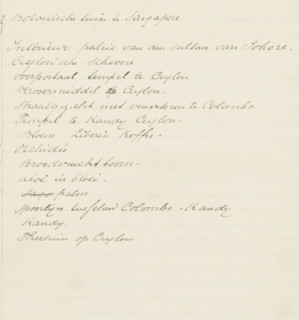 Botanische tuin te Singapore
Interieur paleis van den Sultan van Johore.
Ceylon'sche schoone
Voorportaal tempel te Ceylon
Vervoermiddel op Ceylon.
Straatgezicht met omnibus te Colombo
Tempel te Kandy Ceylon.
Bloem Liberia Koffie.
Orchidee
Broodvruchtboom.
aloë in bloei.
Sago palm
Spoorlijn tusschen Colombo - Kandy
Kandy.
Theetuin op Ceylon